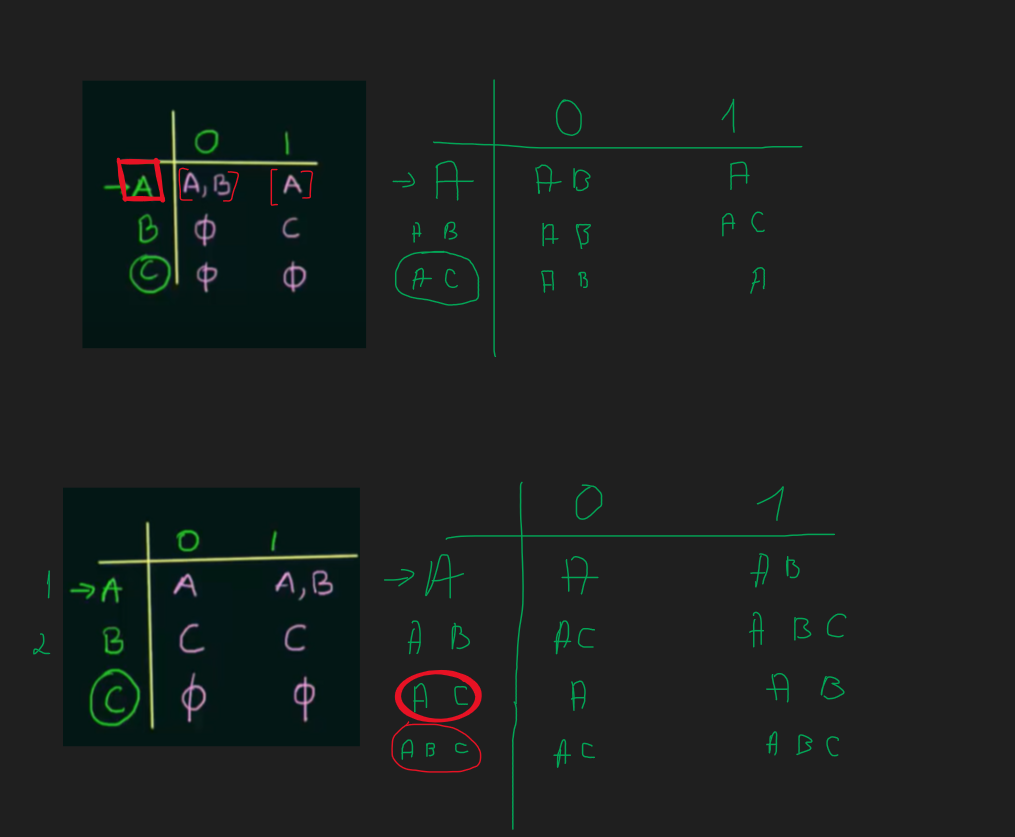 0 1
A A,B A
B ϕ C
C ϕ ϕ
0 1
→ A AB A
AB AB AC
AC AB A
0 1
1 → A A A,B
2 B C C
C ϕ ϕ
0 1
→ A A AB
AB AC ABC
AC A AB
ABC AC ABC